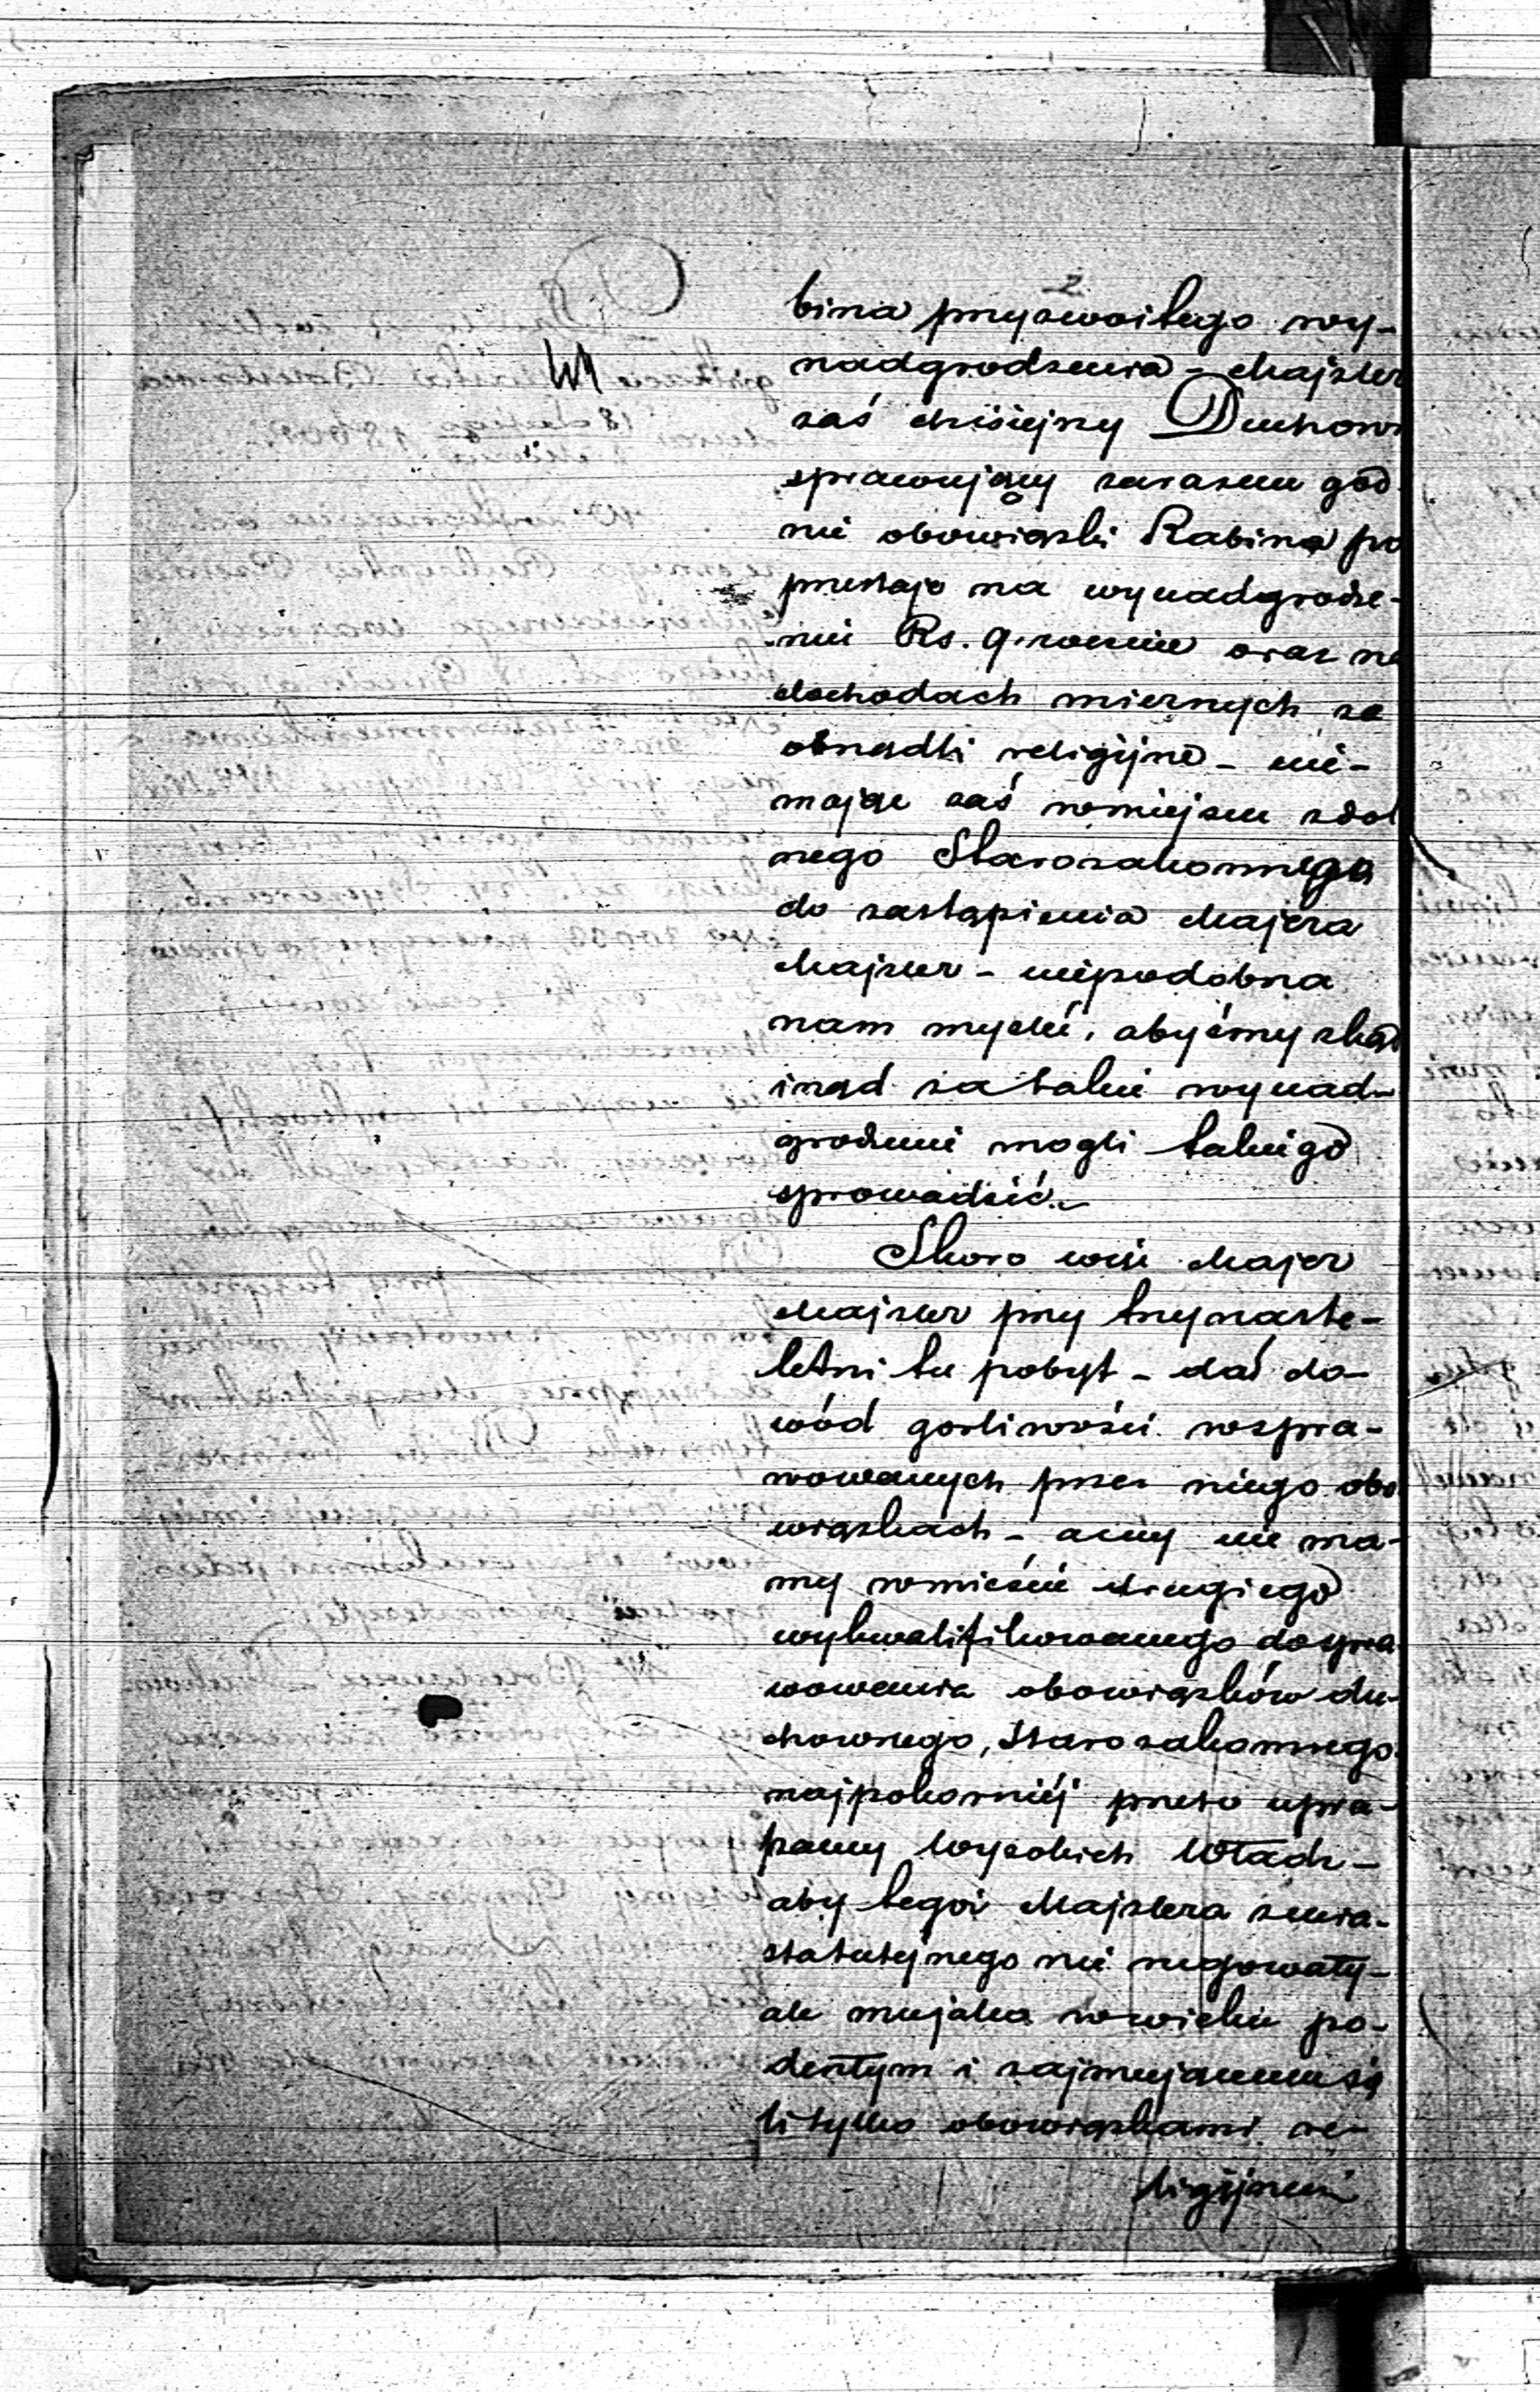 2.
bina przyzwoitego wy-
nadgrodzenia – Majzler
zaś dzisiejszy Duchown
sprawujący zarazem god
nie obowiązki Rabina po
przestaje na wynadgrodze-
niu Rs. 9. rocznie oraz na
dochodach miernych za
obrządki religijne – nie-
mając zaś wmiejscu zdol
nego Starozakonnego
do zastąpienia Majera
Majzler – niepodobna
nam myśleć, abyśmy zkąd
inąd za takie wynad-
grodzenie mogli takiego
sprowadzić.
Skoro więc Majer
Majzler przy trzynasto-
letni tu pobyt – dał do-
wód gorliwości wspra-
wowanych przez niego obo
wiązkach – a my nie ma-
my wmieście drugiego
wykwalifikowanego dospra
wowania obowiązków du-
chownego, Starozakonnego
najpokorniéj przeto upra-
szamy Wysokich Władz –
aby tegoż Majzlera
nie rugowały –
ale jako wwieku po-
deszłym i zajmującemu się
li tylko obowiązkami re-
ligijnemi